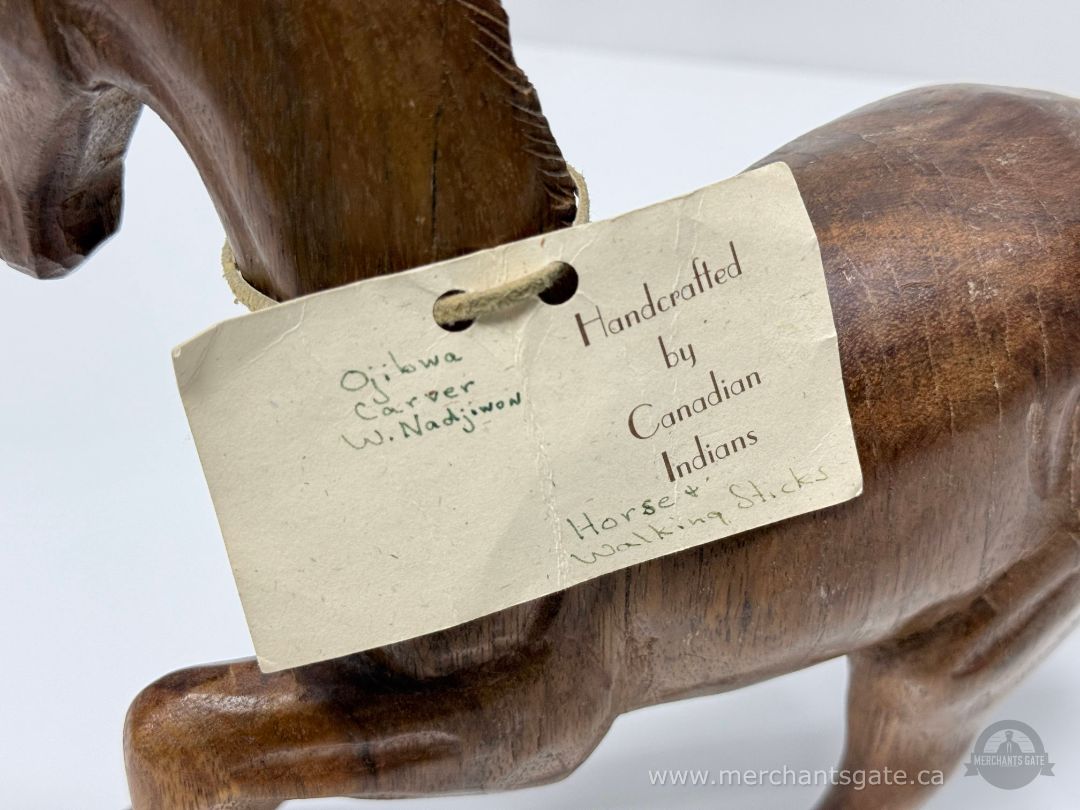 Ojibwa
Carver
W. Nadjiwon
Handcrafted
by
Canadian
Indians
Horse +
Walking Sticks
www.merchantsgate.ca
MERCHANTS GATE